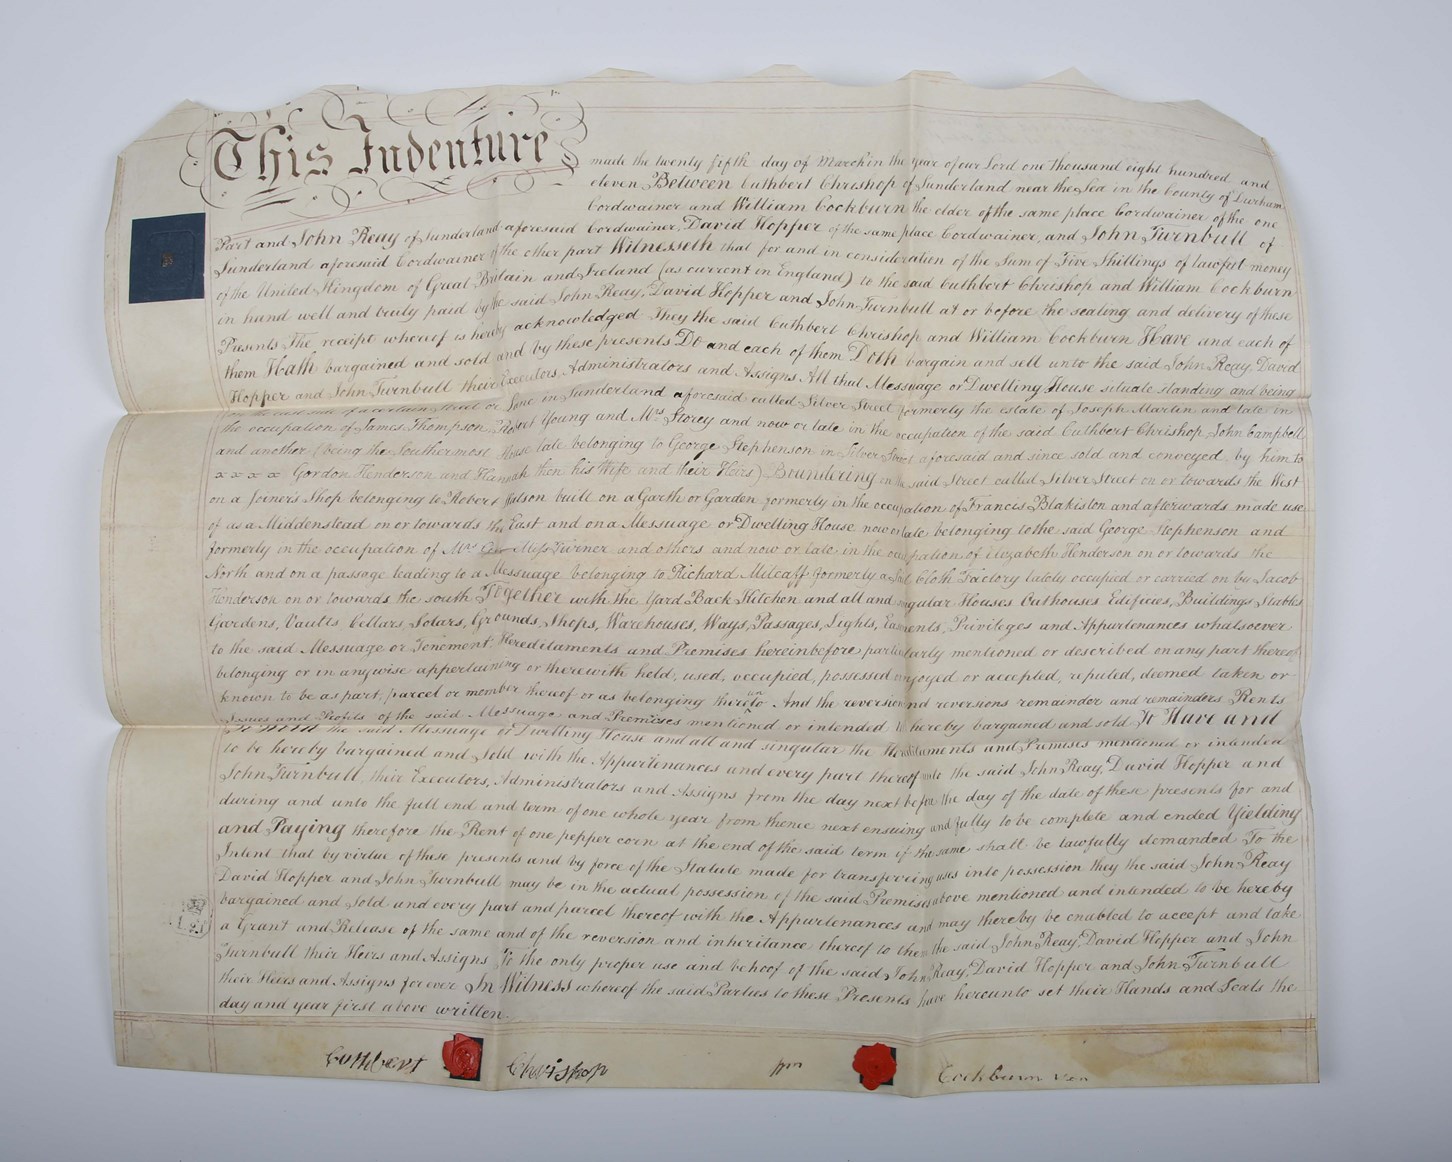 This Indenture made the twenty fifth day of March in the year of our Lord one thousand eight hundred and
eleven Between Cuthbert Chrishop of Sunderland near the Sea in the County of Durham
Cordwainer and William Cockburn the elder of the same place Cordwainer of the one
Part and John Reay of Sunderland aforesaid Cordwainer, David Hopper of the same place Cordwainer, and John Turnbull of
Sunderland aforesaid Cordwainer of the other part Witnesseth that for and in consideration of the Sum of Five Shillings of lawful money
of the United Kingdom of Great Britain and Ireland (as current in England) to the said Cuthbert Chrishop and William Cockburn
in hand well and truly paid by the said John Reay, David Hopper and John Turnbull at or before the sealing and delivery of these
Presents The receipt whereof is hereby acknowledged They the said Cuthbert Chrishop and William Cockburn Have and each of
them Hath bargained and sold and by these presents Do and each of them Doth bargain and sell unto the said John Reay, David
Hopper and John Turnbull their Executors Administrators and Assigns All that Messuage or Dwelling House situate standing and being
on the east side of a certain Street or Lane in Sunderland aforesaid called Silver Street formerly the estate of Joseph Martin and late in
the occupation of James Thompson, Robert Young and Mrs Storey and now or late in the occupation of the said Cuthbert Chrishop, John Campbell
and another (being the Southermost House late belonging to George Stephenson in Silver Street aforesaid and since sold and conveyed by him to
x x x x Gordon Henderson and Hannah then his Wife and their Heirs) Boundering on the said Street called Silver Street on or towards the West
on a Joiner's Shop belonging to Robert Watson built on a Garth or Garden formerly in the occupation of Francis Blakiston and afterwards made use
of as a Middenstead on or towards the East and on a Messuage or Dwelling House now or late belonging to the said George Stephenson and
formerly in the occupation of Mrs Miss Turner and others and now or late in the occupation of Elizabeth Henderson on or towards the
North and on a passage leading to a Messuage belonging to Richard Metcalf formerly a Sail Cloth Factory lately occupied or carried on by Jacob
Henderson on or towards the south Together with the Yard Back Kitchen and all and singular Houses Outhouses Edifices, Buildings Stables
Gardens, Vaults Cellars, Solars, Grounds, Shops, Warehouses, Ways, Passages, Lights, Easments, Privileges and Appurtenances whatsoever
to the said Messuage or Tenement Hereditaments and Premises hereinbefore particularly mentioned or described or any part thereof
belonging or in anywise appertaining or therewith held, used, occupied, possessed enjoyed or accepted, reputed, deemed taken or
known to be as part, parcel or member thereof or as belonging thereunto And the reversion and reversions remainder and remainders Rents
Issues and Profits of the said Messuage and Premises mentioned or intended to hereby bargained and sold To Have and
To Hold the said Messuage or Dwelling House and all and singular the Hereditaments and Premises mentioned or intended
to be hereby bargained and Sold with the Appurtenances and every part thereof unto the said John Reay, David Hopper and
John Turnbull, their Executors, Administrators and Assigns from the day next before the day of the date of these presents for and
during and unto the full end and term of one whole year from thence next ensuing and fully to be complete and ended Yielding
and Paying therefore the Rent of one pepper corn at the end of the said term if the same shall be lawfully demanded To the
Intent that by virtue of these presents and by force of the Statute made for transferring uses into possession they the said John Reay
David Hopper and John Turnbull may be in the actual possession of the said Premises above mentioned and intended to be hereby
bargained and Sold and every part and parcel thereof with the Appurtenances and may thereby be enabled to accept and take
a Grant and Release of the same and of the reversion and inheritance thereof to them the said John Reay, David Hopper and John
Turnbull their Heirs and Assigns To the only proper use and behoof of the said John Reay, David Hopper and John Turnbull
their Heirs and Assigns for ever In Witness whereof the said Parties to these Presents have hereunto set their Hands and Seals the
day and year first above written.
Cuthbert Chrishop Wm Cockburn